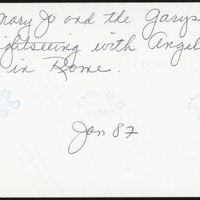 Mary Jo and the Garys
ightseeing with Angel
in Rome.
Jan 87